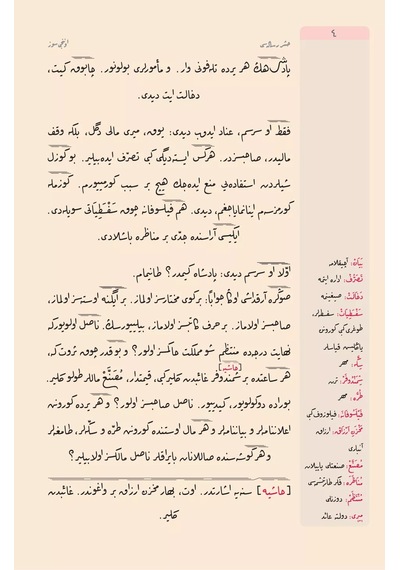 ٤
حشر رساله‌سى
اونجى سوز
پادشاهڭ هر يرده تلفونى وار. و مأمورلرى بولونور. چابوق گيت،
دخالت ايت ديدى.
فقط او سرسم، عناد ايدوب ديدى: يوق، ميرى مالى دگل، بلكه وقف
ماليدر، صاحبسزدر. هركس ايسته‌ديگى گبى تصرّف ايده‌بيلير. بو گوزل
شيلردن استفاده‌يى منع ايده‌جك هيچ بر سبب گورميورم. گوزمله
گورمزسم اينانمايه‌جغم، ديدى. هم فيلسوفانه چوق سَفْسَطِيَاتى سويله‌دى.
ايكيسى آراسنده جدّى بر مناظره باشلادى.
اوّلا او سرسم ديدى: پادشاه كيمدر؟ طانيمام.
صوڭره آرقداشى اوڭا جوابًا: بر كوى مختارسز اولماز. بر ايگنه اوسته‌سز اولماز،
صاحبسز اولاماز. بر حرف كاتبسز اولاماز، بيلييورسڭ. ناصل اولويوركه
نهايت درجه‌ده منتظم شو مملكت حاكمسز اولور؟ و بو قدر چوق ثروت كه،
هر ساعتده بر شمندوفر [حاشيه] غائبدن گلير گبى، قيمتدار، مُصَنَّعْ ماللر طولو گلير.
بوراده دوكولويور، گيدييور. ناصل صاحبسز اولور؟ و هر يرده گورونن
اعلاننامه‌لر و بياننامه‌لر و هر مال اوستنده گورونن طرّه و سكّه‌لر، طامغه‌لر
و هر گوشه‌سنده صاللانان بايراقلر ناصل مالكسز اولابيلير؟
[حاشيه] سنه‌يه اشارتدر. اوت، بهار مخزن ارزاق بر واغوندر. غائبدن
گلير.
بَيَانْ: آچيقلامه
تَصَرُّفْ: اداره ايتمه
دَخَالَتْ: صيغينمه
سَفْسَطِيَاتْ: سفسطه‌لر،
طوغرى گبى گورونن
ياڭليش قياسلر
سِكَّه: مهر
شِمَنْدُوفَرْ: ترن
طُرَّه: مهر
فَيْلَسُوفَانَه: فيلوزوف گبى
مَخْزَنِ أَرْزَاقْ: ارزاق
آنبارى
مُصَنَّعْ: صنعتلى ياپيلان
مُنَاظَرَه: فكر طارتيشمه‌سى
مُنْتَظَمْ: دوزنلى
مِيرِى: دولته عائد